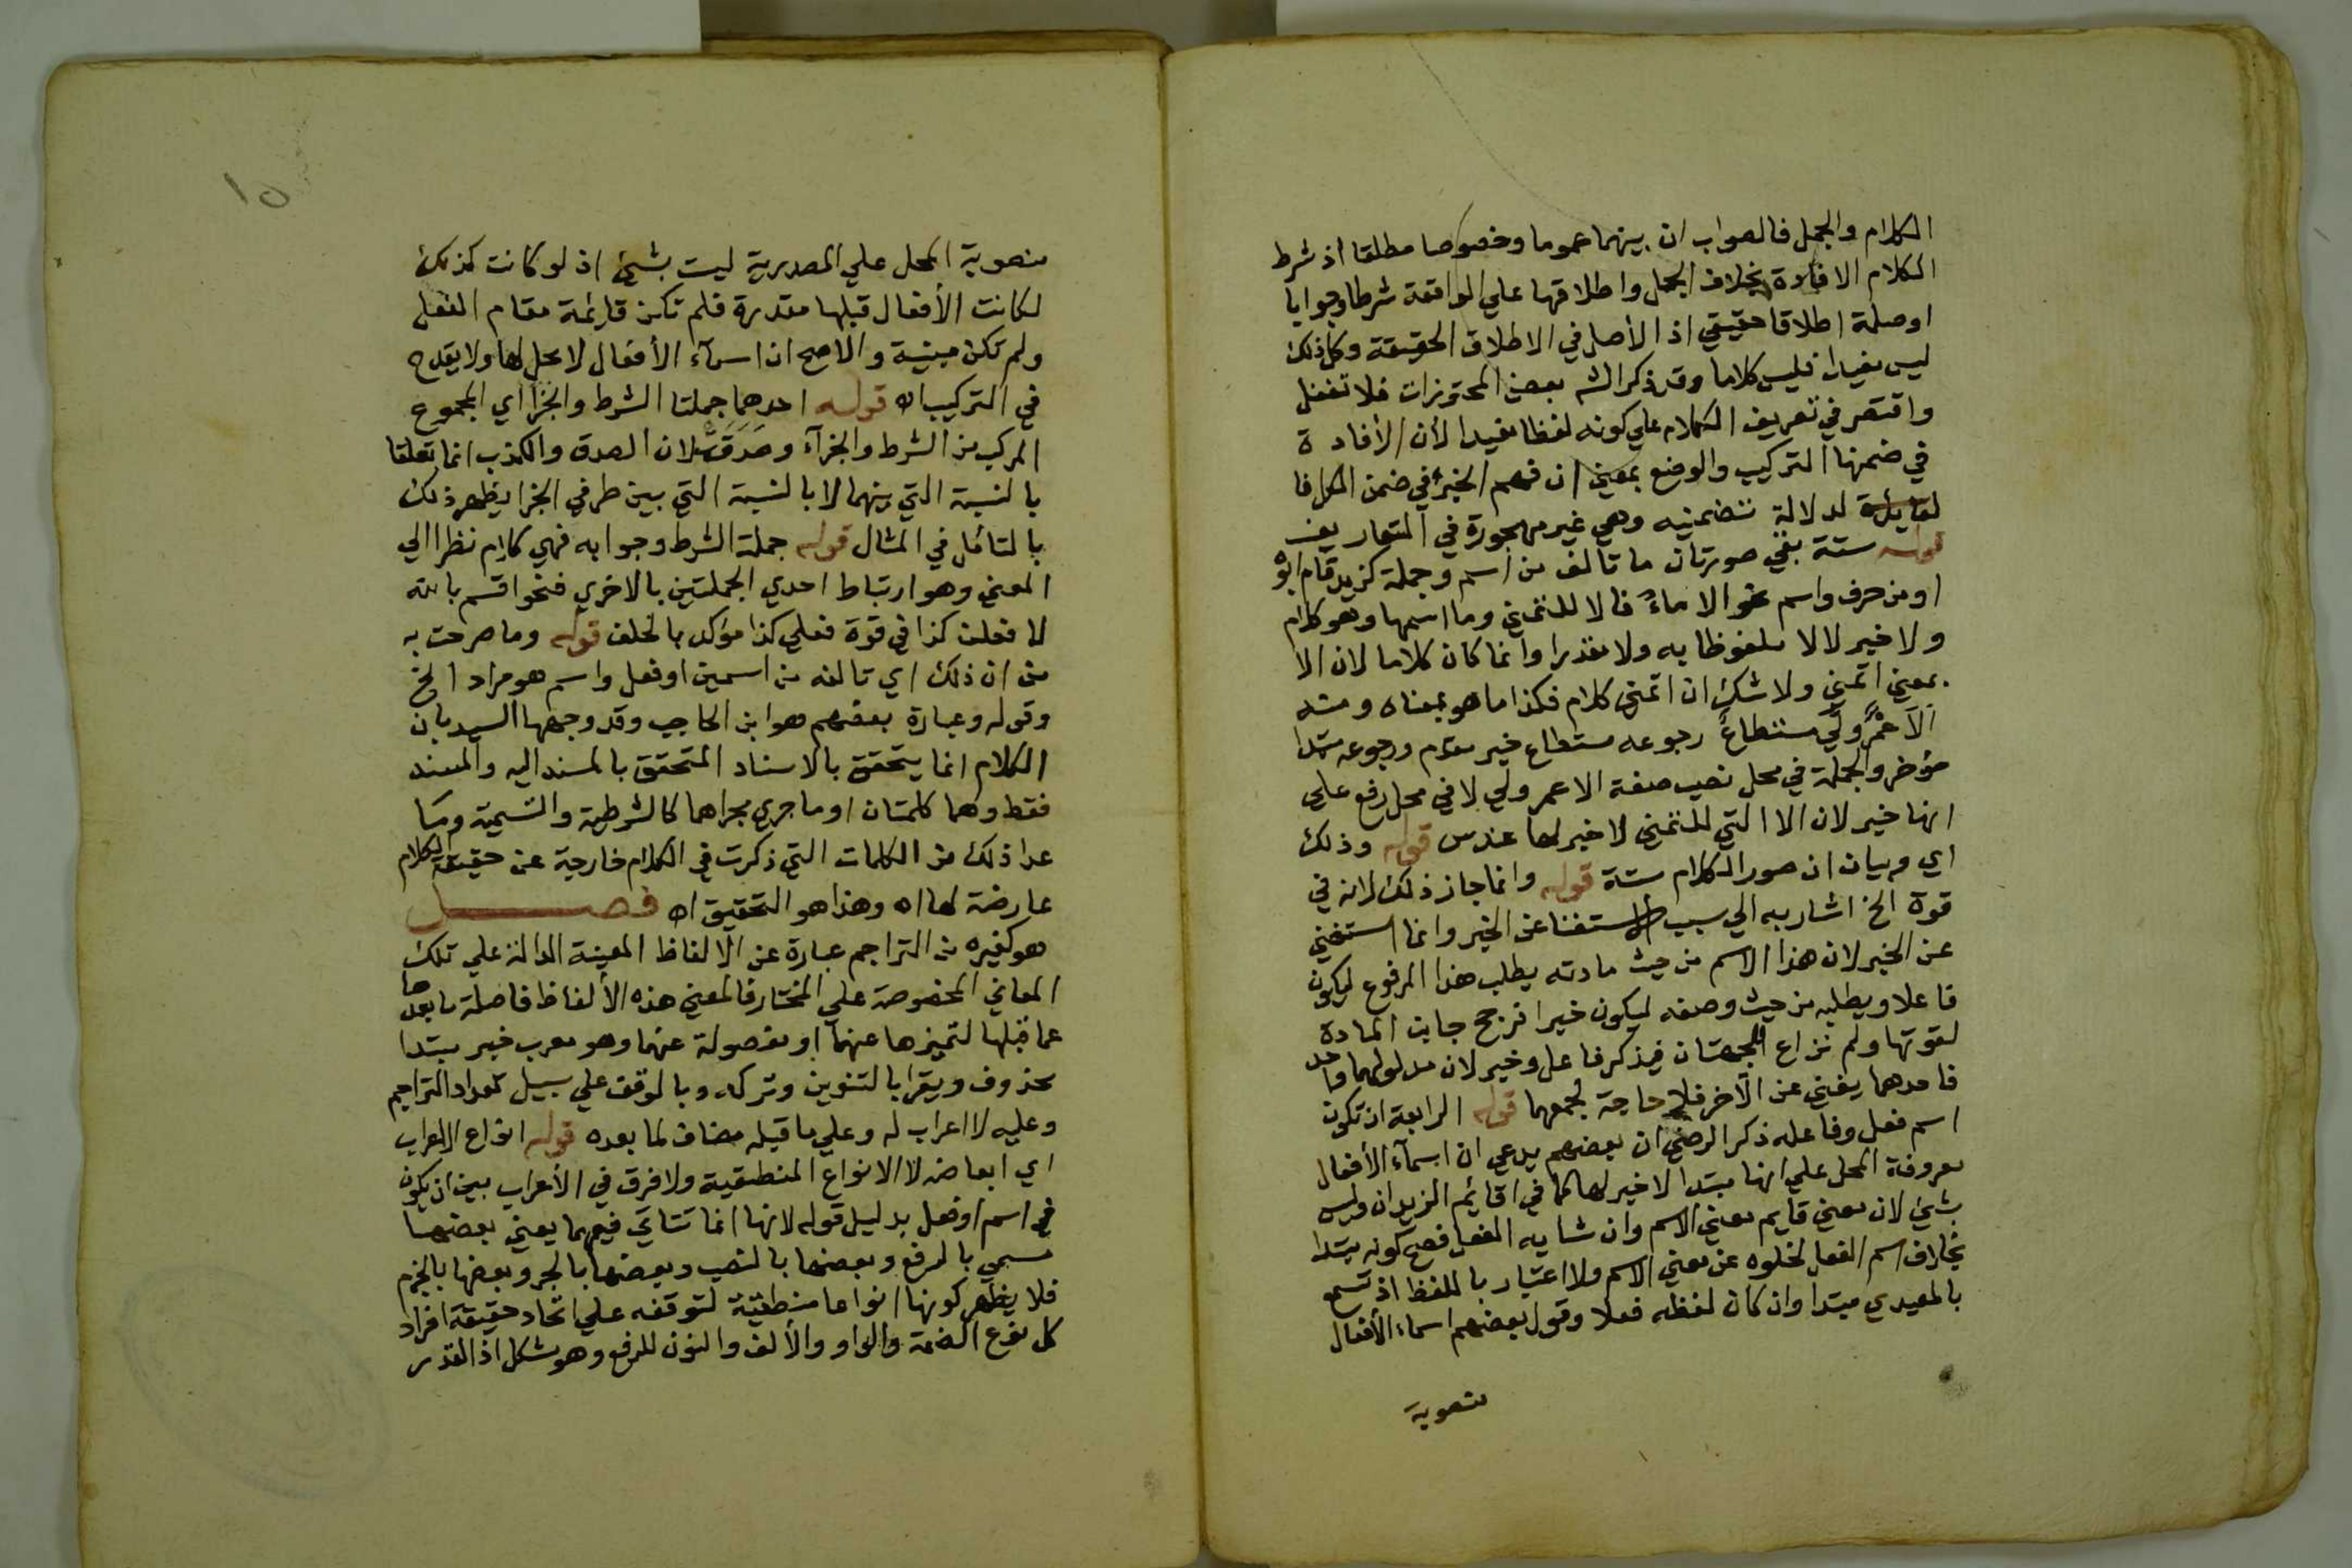 الكلام والجمل فالصواب ان بينهما عموما وخصوصا مطلقا اذ شرط
الكلام الافادة بخلاف الجمل واطلاقها علي الواقعة شرطا وجوابا
اوصلة اطلاقا حقيقي اذ الأصل في الاطلاق الحقيقة وكل ذلك
ليس مفيدا فليس كلاما وقد ذكر الش بعض المحترزات فلا تغفل
واقتصر في تعريف الكلام علي كونه لفظا مفيدا لأن الأفادة
في ضمنها التركيب والوضع بمعني ان فهم الجزء في ضمن الكل فا
لدلالة تضمنيه وهي غير مهجورة في التعاريف
قوله ستة بقي صورتان ما تالف من اسم وجملة كزيد قام ابوه
اومن حرف واسم نحو الا ماءً فالا للتمني وما اسمها وهو كلام
ولا خبر لا لا ملفوظا به ولا مقدرا وانما كان كلاما لان الا
بمعني اتمني ولا شك ان اتمني كلام فكذا ما هو بمعناه ومثله
الا عمرَ ولّي مستطاعٌ رجوعه مستطاع خبر مقدم ورجوعه مبتدا
مؤخر والجملة في محل نصب صفة الاعمر ولي لا في محل رفع علي
انها خبر لان الا التي للتمني لا خبر لها عند س قوله وذلك
اي وبيان ان صور الكلام ستة قوله وانما جاز ذلك لانه في
قوة الخ اشار به الي سبب الاستغنا عن الخبر وانما استغني
عن الخبر لان هذا الاسم من حيث مادته يطلب هذا المرفوع ليكون
فاعلا ويطلبه من حيث وصفه ليكون خبرا فرجح جانب المادة
لقوتها ولم نراع الجهتان فيذكر فاعل وخبر لان مدلولهما واحد
فاحدهما يغني عن الآخر فلا حاجة لجمعهما قوله الرابعة ان تكون
اسم فعل وفاعله ذكر الرضي ان بعضهم يدعي ان اسمآء الأفعال
مرفوعة المحل علي انها مبتدا لا خبر لها كما في اقائم الزيدان وليس
بشئ لان معني قايم معني الاسم وان شابه الفعل فصح كونه مبتدا
بخلاف اسم الفعل لخلوه عن معني الاسم ولا اعتبار باللفظ اذ تسمع
بالمعيدي مبتدا وان كان لفظه فعلا وقول بعضهم اسماء الأفعال
منصوبة
١٥
منصوبة المحل علي المصدرية ليست بشئ اذ لو كانت كذلك
لكانت الأفعال قبلها مقدرة فلم تكن قائمة مقام الفعل
ولم تكن مبنية والاصح ان اسمآء الأفعال لا محل لها ولا يقدح
في التركيب اه قوله احدهما جملتا الشرط والجزا اي المجموع
المركب من الشرط والجزآء لان الصدق والكذب انما تعلقا
بالنسبة التي بينهما لا بالنسبة التي بين طرفي الجزا يظهر ذلك
بالتامل في المثال قوله جملة الشرط وجوابه فهي كلام نظرا الي
المعني وهو ارتباط احدي الجملتين بالاخري فنحو اقسم بالله
لا فعلت كذا في قوة فعلي كذا مؤكد بالحلف قوله وما صرحت به
من ان ذلك اي تالفه من اسمين او فعل واسم هو مراد الخ
وقوله وعبارة بعضهم هو ابن الحاجب وقد وجهها السيد بان
الكلام انما يتحقق بالاسناد المتحقق بالمسند اليه والمسند
فقط وهما كلمتان او ما جري مجراهما كالشرطية والقسمية وما
عدا ذلك من الكلمات التي ذكرت في الكلام خارجة عن حقيقة الكلام
عارضة لها اه وهذا هو التحقيق اه فصل
هو كغيره من التراجم عبارة عن الالفاظ المعينة الدالة علي تلك
المعاني المخصوصة علي المختار فالمعني هذه الألفاظ فاصلة ما بعدها
عما قبلها لتميزها عنهما او مفصولة عنهما وهو معرب خبر مبتدا
محذوف ويقرا بالتنوين وتركه وبالوقف علي سبيل تعداد التراجم
وعليه لا اعراب له وعلي ما قبله مضاف لما بعده قوله انواع الاعراب
اي ابعاضه لا الانواع المنطقية ولا فرق في الأعراب بين ان يكون
في اسم او فعل بدليل قوله لانها انما تتاتي فيهما يعني بعضها
يسمي بالرفع وبعضها بالنصب وبعضها بالجر وبعضها بالجزم
فلا يظهر كونها انواعا منطقية لتوقفه علي اتحاد حقيقة افراد
كل نوع الضمة والواو والألف والنون للرفع وهو مشكل اذ القدر